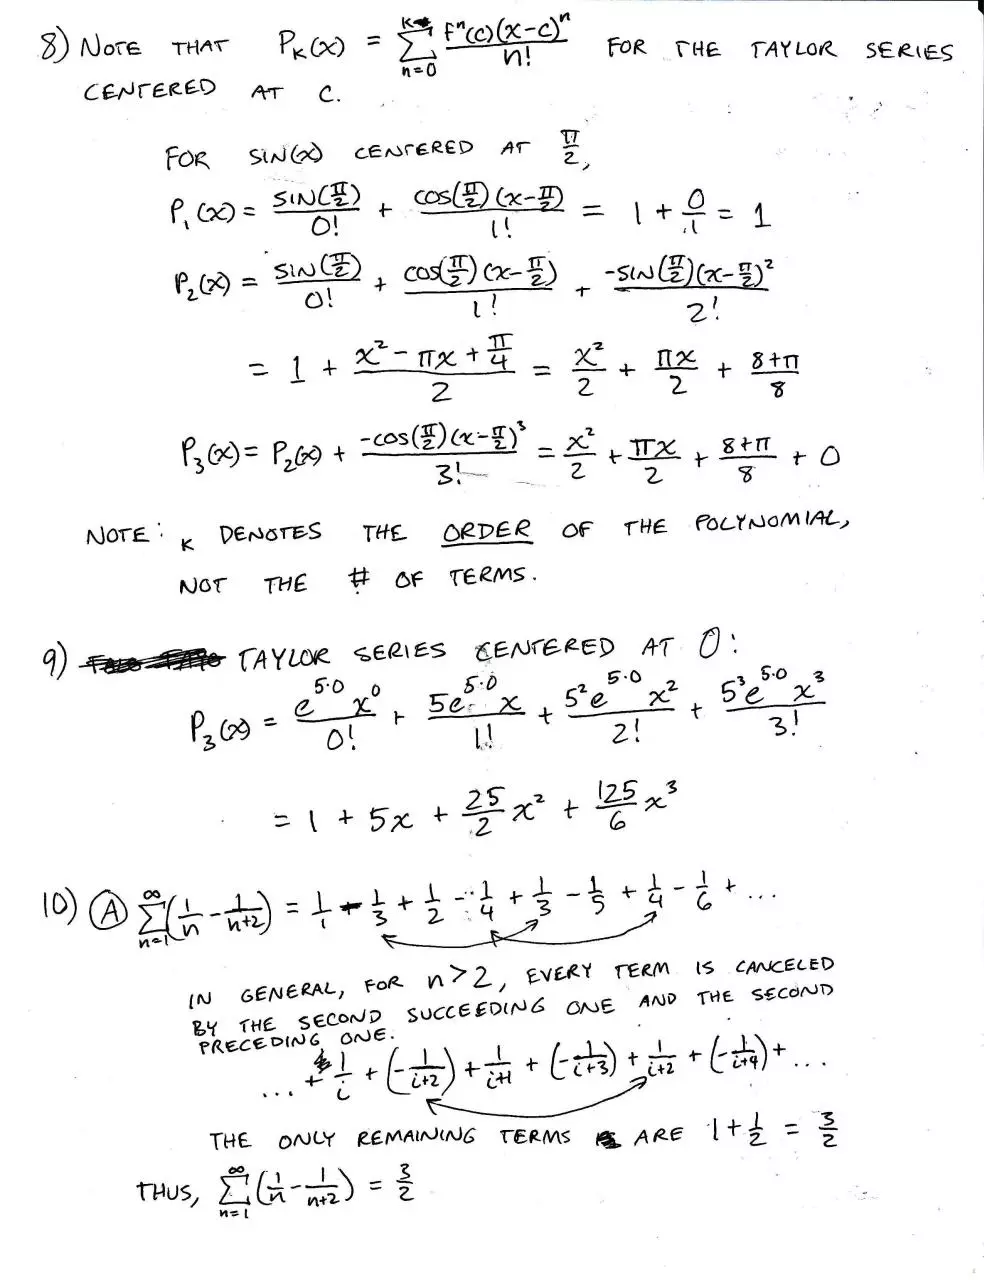 8) NOTE THAT P_K(x) = Σ_{n=0}^{K} F^n(c)(x-c)^n / n! FOR THE TAYLOR SERIES
CENTERED AT C.
FOR SIN(x) CENTERED AT π/2,
P_1(x) = SIN(π/2)/0! + COS(π/2)(x-π/2)/1! = 1 + 0/1 = 1
P_2(x) = SIN(π/2)/0! + COS(π/2)(x-π/2)/1! + -SIN(π/2)(x-π/2)^2/2!
= 1 + (x^2 - πx + π/4)/2 = x^2/2 + πx/2 + (8+π)/8
P_3(x) = P_2(x) + -COS(π/2)(x-π/2)^3/3! = x^2/2 + πx/2 + (8+π)/8 + 0
NOTE: K DENOTES THE ORDER OF THE POLYNOMIAL,
NOT THE # OF TERMS.
9) TAYLOR SERIES CENTERED AT 0:
P_3(x) = e^{5·0} x^0/0! + 5e^{5·0} x/1! + 5^2 e^{5·0} x^2/2! + 5^3 e^{5·0} x^3/3!
= 1 + 5x + 25/2 x^2 + 125/6 x^3
10) A Σ_{n=1}^{∞} (1/n - 1/(n+2)) = 1/1 - 1/3 + 1/2 - 1/4 + 1/3 - 1/5 + 1/4 - 1/6 + ...
IN GENERAL, FOR n>2, EVERY TERM IS CANCELED
BY THE SECOND SUCCEEDING ONE AND THE SECOND
PRECEDING ONE.
... + 1/i + (-1/(i+2)) + 1/(i+1) + (-1/(i+3)) + 1/(i+2) + (-1/(i+4)) + ...
THE ONLY REMAINING TERMS ARE 1 + 1/2 = 3/2
THUS, Σ_{n=1}^{∞} (1/n - 1/(n+2)) = 3/2